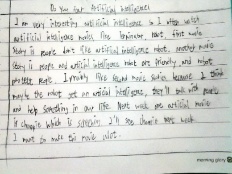 Do you fear Artificial Intelligence?
I am very interesting artificial intelligence so I often watch
artificial intelligence movies like terminator, first movie
story is people don't like artificial intelligence robot, another movie
story is people and artificial intelligence robot are friendly, and robot
protect people. I mainly like second movie stories because I think
maybe the robot get an artificial intelligence, they'll talk with people
and help something in our life. Next week one artificial movie
is chappie which is I'll see them in next week.
I want to make this movie
morning glory